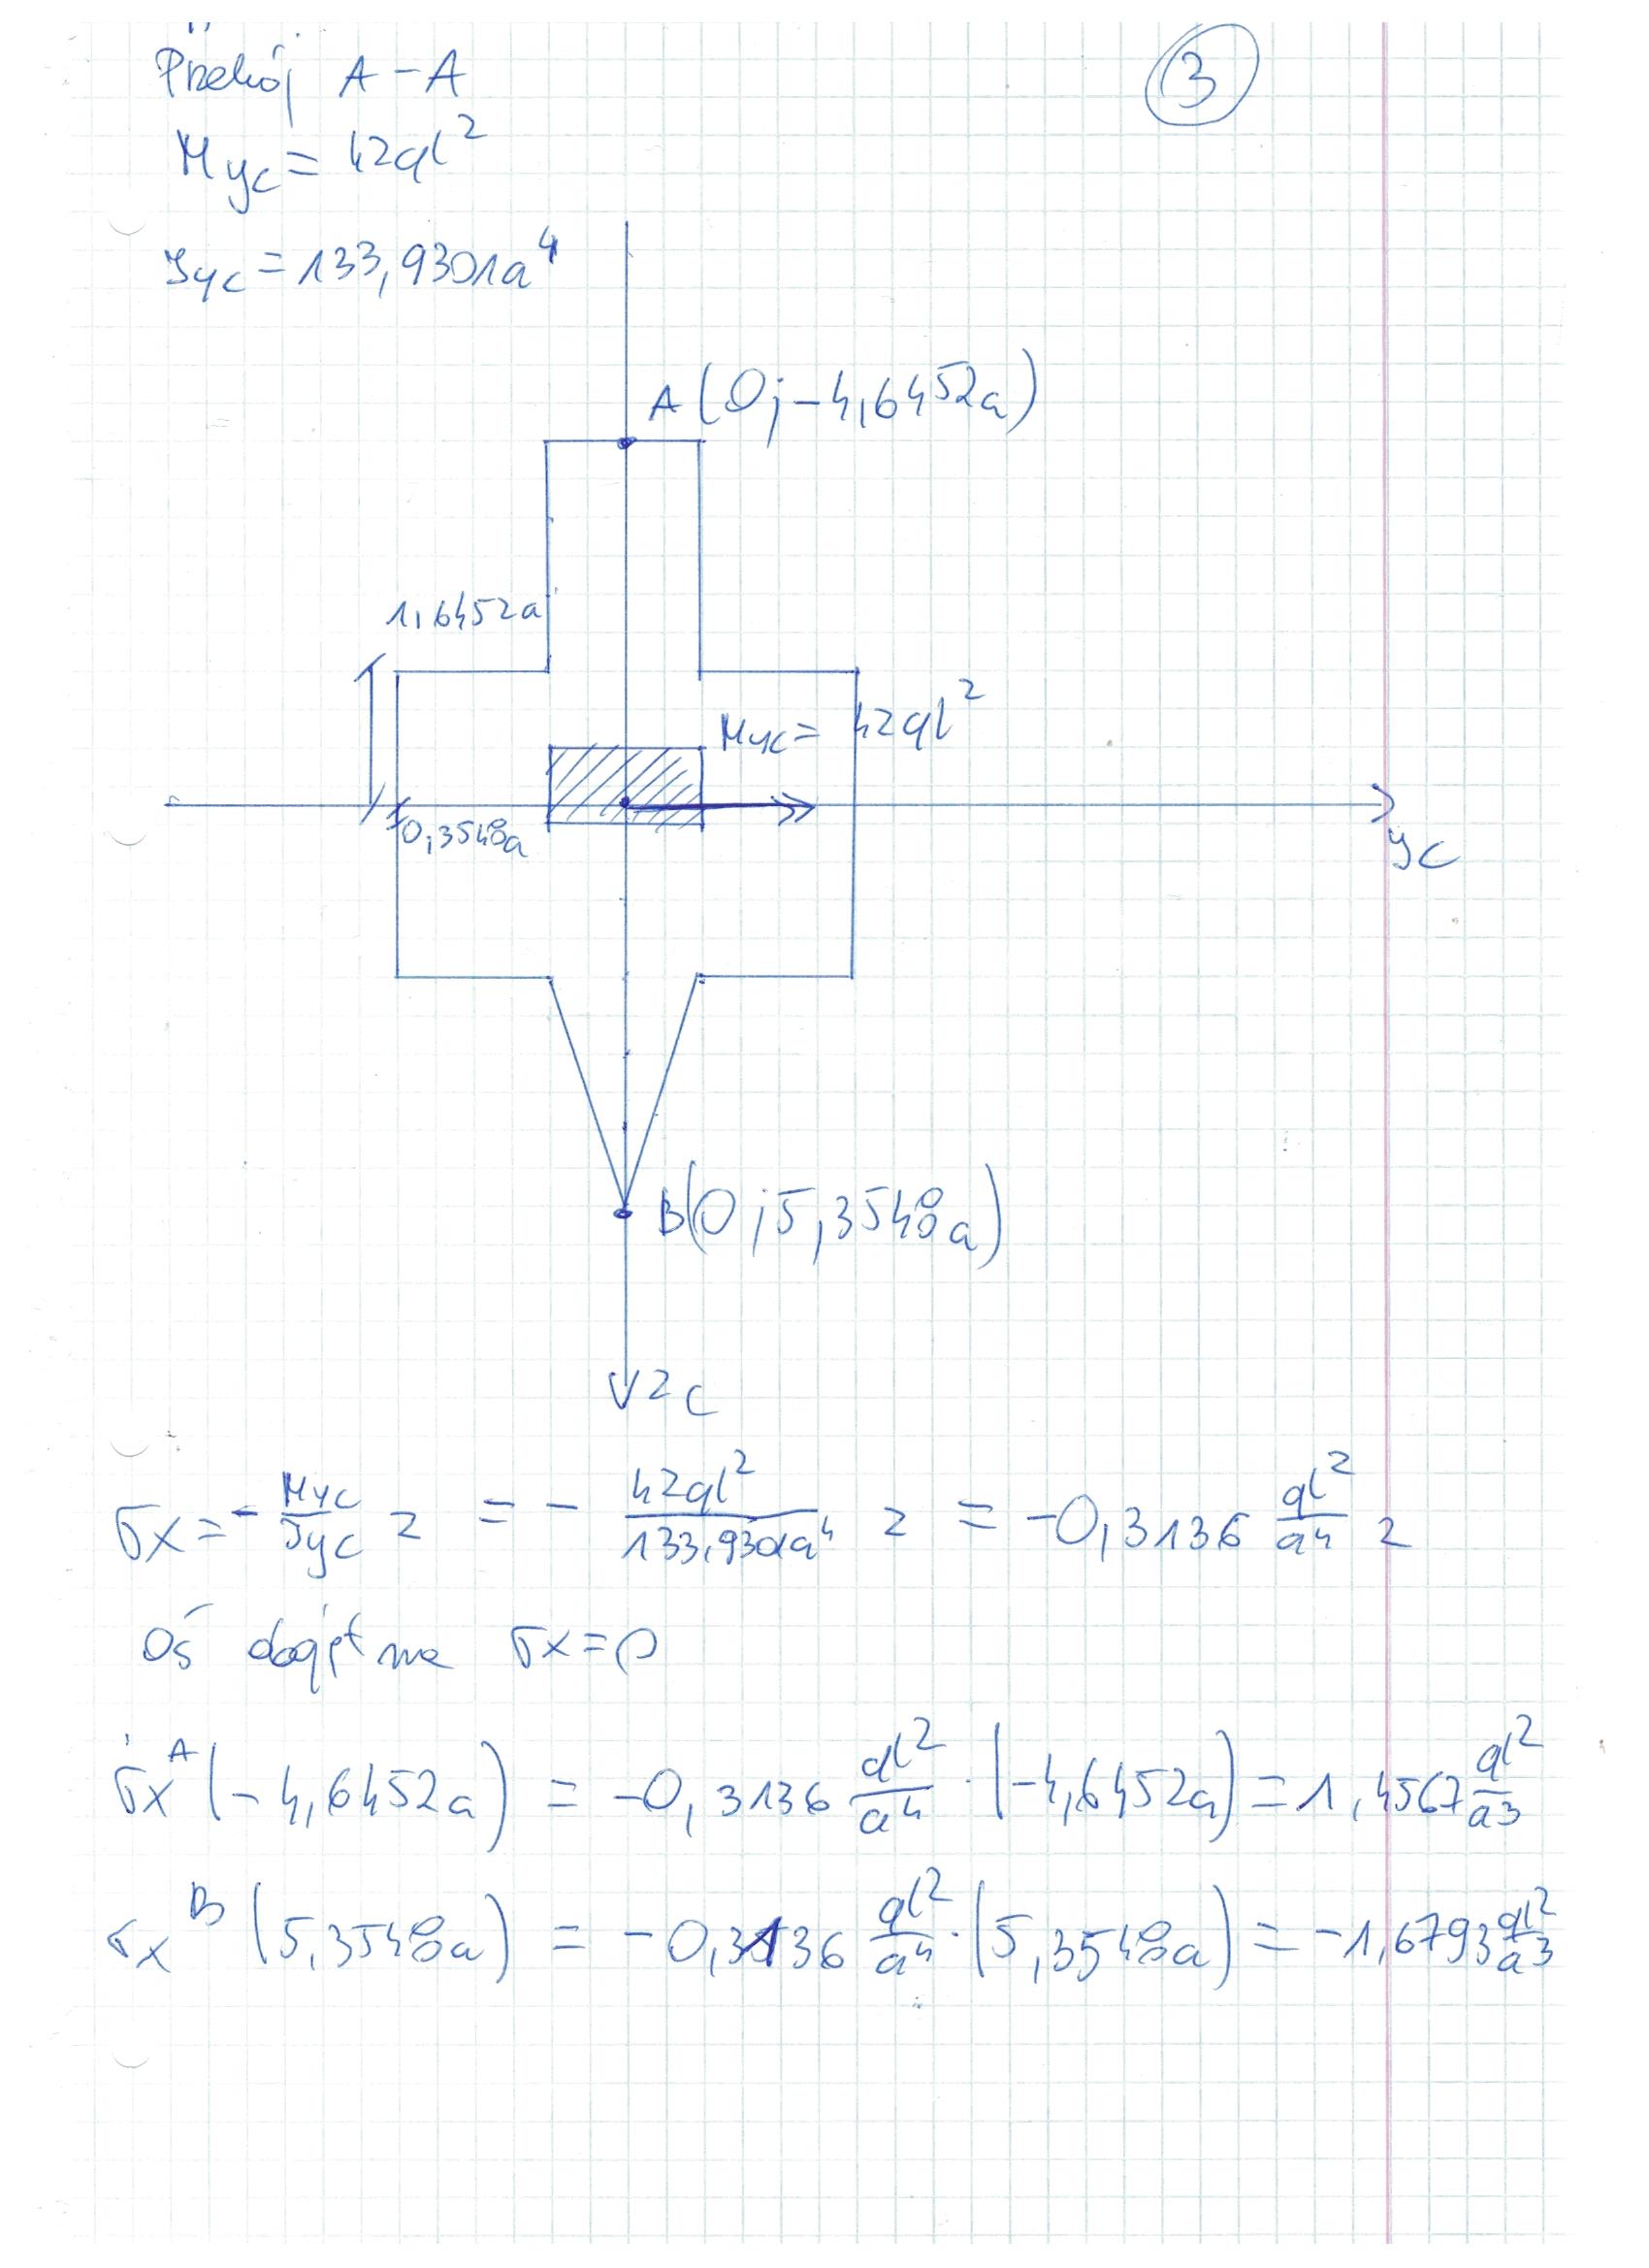 Przekrój A-A
③
Myc = 42ql²
Jyc = 133,9301a⁴
A(0; -4,6452a)
1,6452a
Myc = 42ql²
0,3548a
yc
B(0; 5,3548a)
zc
σx = - Myc/Jyc z = - 42ql²/133,9301a⁴ z = -0,3136 ql²/a⁴ z
Oś obojętna σx=0
σx^A (-4,6452a) = -0,3136 ql²/a⁴ · (-4,6452a) = 1,4567 ql²/a³
σx^B (5,3548a) = -0,3136 ql²/a⁴ · (5,3548a) = -1,6793 ql²/a³